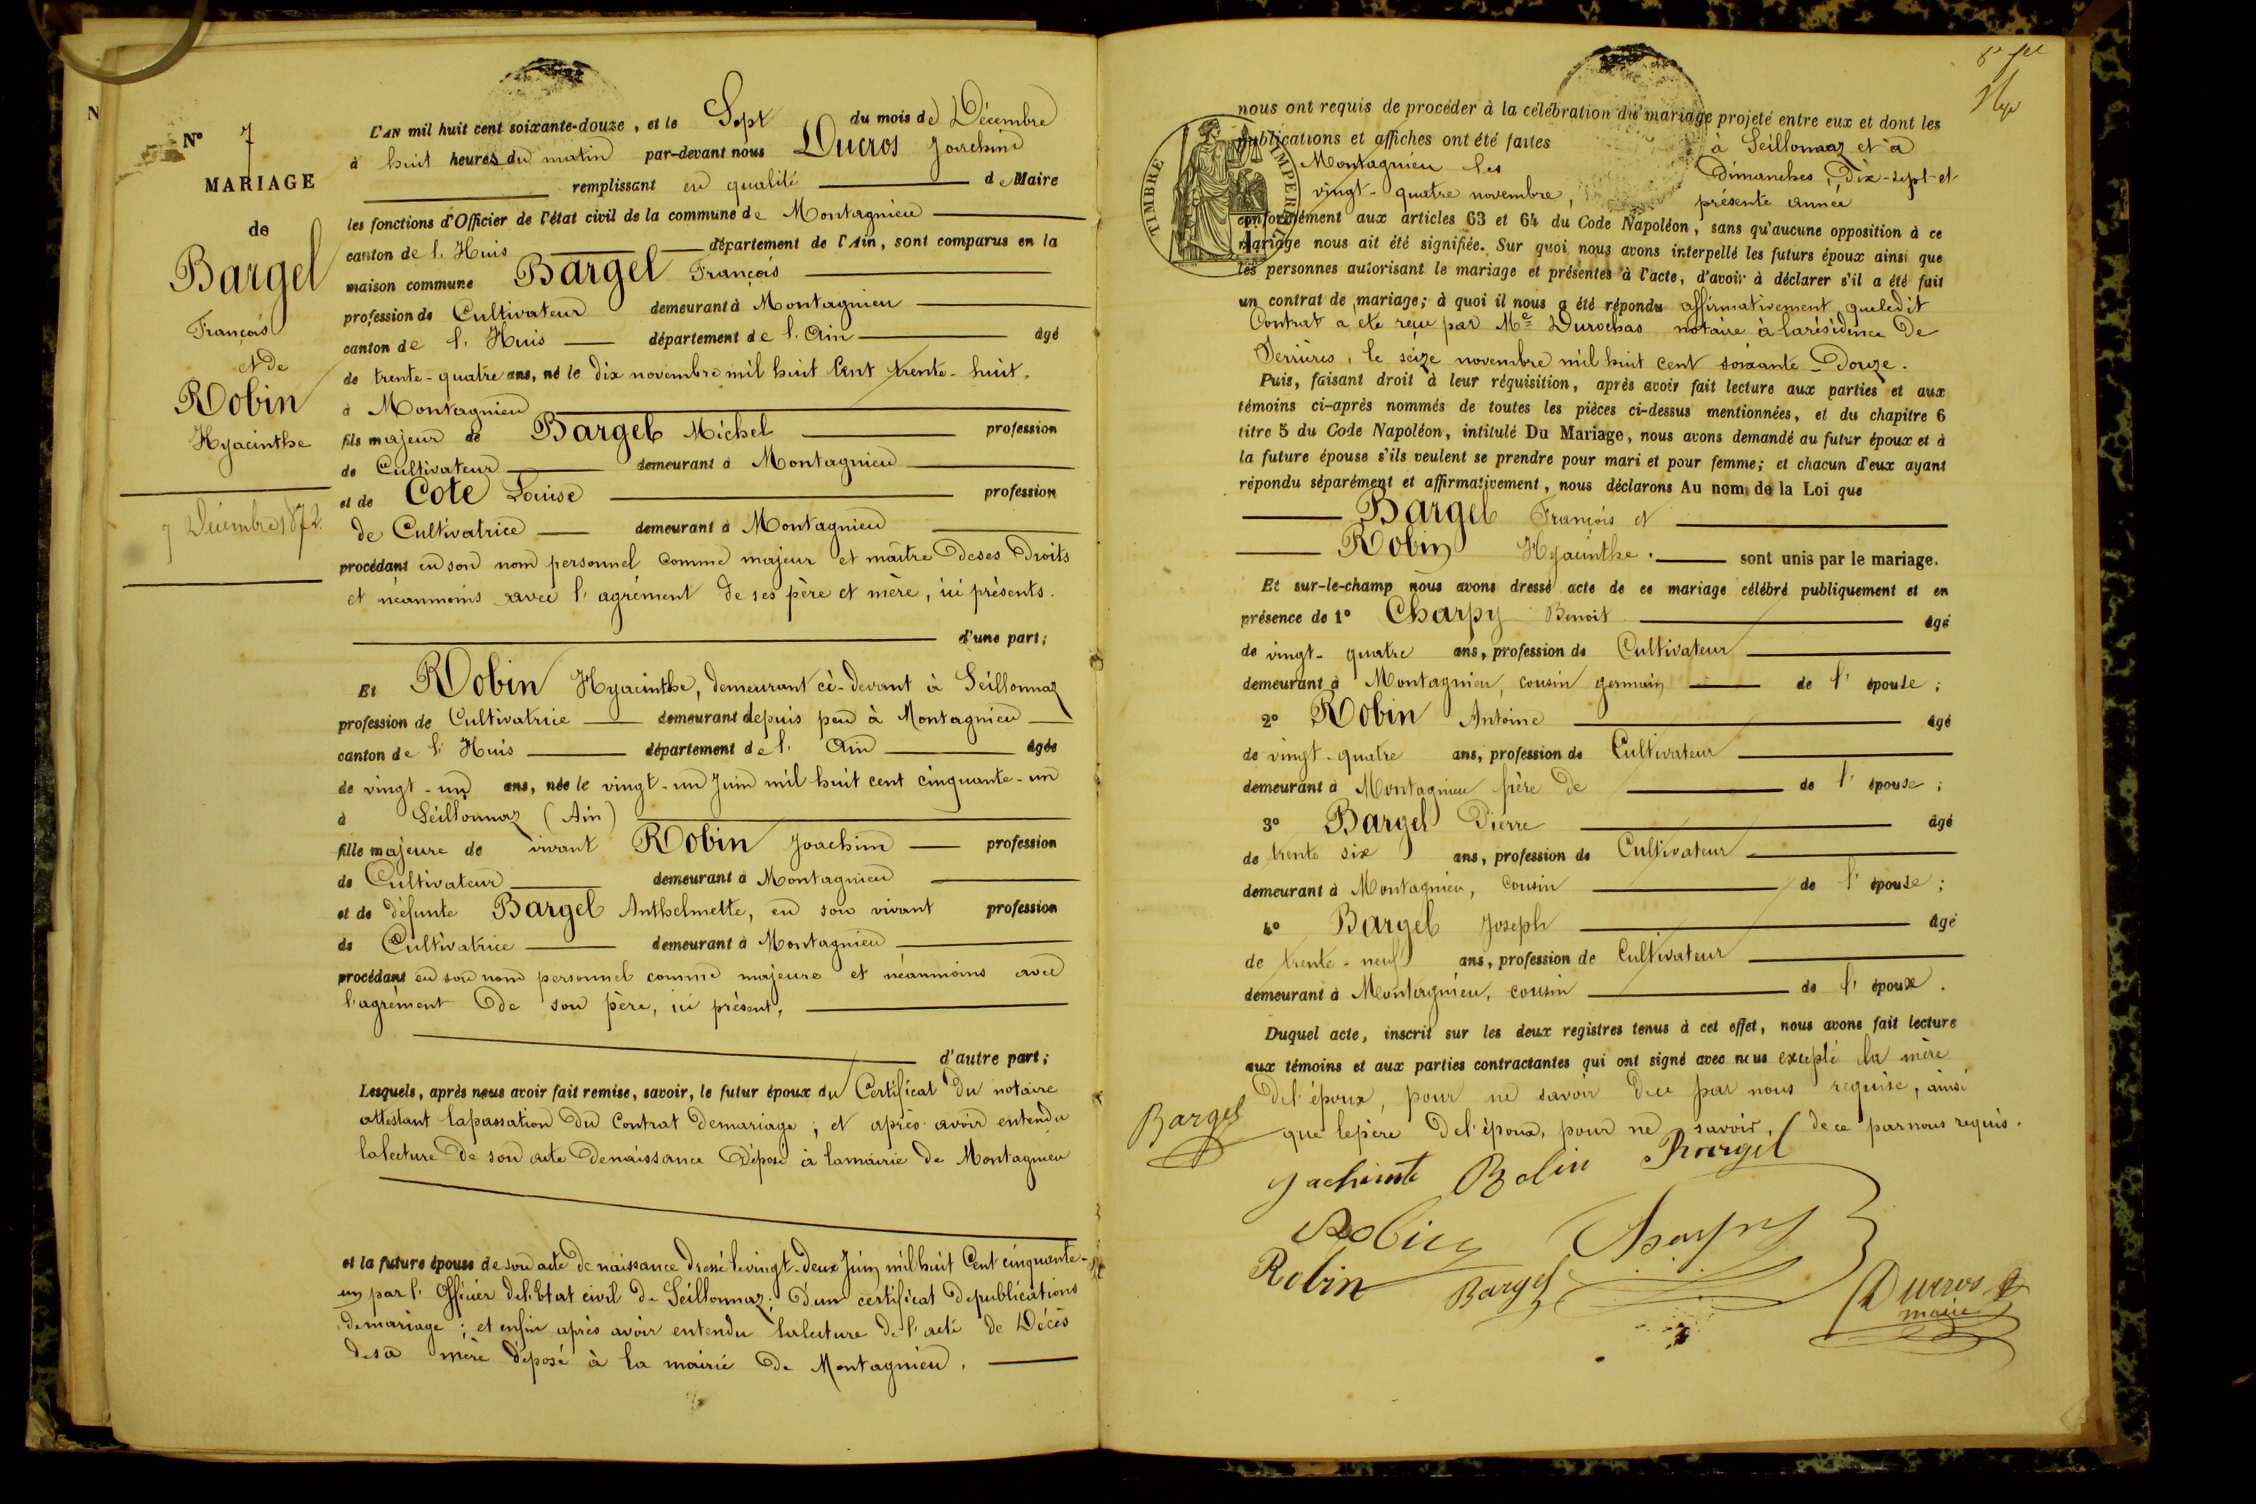 N
N° 7
MARIAGE
de
Bargel
François
et de
Robin
Hyacinthe
7 Décembre 1872.
L'AN mil huit cent soixante-douze, et le Sept du mois de Décembre
à huit heures du matin par-devant nous Ducros Joachim
remplissant en qualité de Maire
les fonctions d'Officier de l'état civil de la commune de Montagnieu
canton de l'Huis département de l'Ain, sont comparus en la
maison commune Bargel François
profession de Cultivateur demeurant à Montagnieu
canton de l'Huis département de l'Ain âgé
de trente-quatre ans, né le dix novembre mil huit Cent trente-huit.
à Montagnieu
fils majeur de Bargel Michel profession
de Cultivateur demeurant à Montagnieu
et de Cote Louise profession
de Cultivatrice demeurant à Montagnieu
procédant en son nom personnel comme majeur et maître de ses Droits
et néanmoins avec l'agrément de ses père et mère, ici présents.
d'une part;
Et Robin Hyacinthe, demeurant ci-devant à Seillonnaz
profession de Cultivatrice demeurant depuis peu à Montagnieu
canton de l'Huis département de l'Ain âgée
de vingt-un ans, née le vingt-un Juin mil huit cent cinquante-un
à Seillonnaz (Ain)
fille majeure de vivant Robin Joachim profession
de Cultivateur demeurant à Montagnieu
et de défunte Bargel Anthelmette, en son vivant profession
de Cultivatrice demeurant à Montagnieu
procédant en son nom personnel comme majeure et néanmoins avec
l'agrément de son père, ici présent,
d'autre part;
Lesquels, après nous avoir fait remise, savoir, le futur époux du Certificat du notaire
attestant la passation du Contrat de mariage; et après avoir entendu
la lecture de son acte de naissance déposé à la mairie de Montagnieu
et la future épouse de son acte de naissance dressé le vingt-deux Juin mil huit Cent cinquante-
un par l'Officier de l'Etat civil de Seillonnaz; d'un certificat de publications
de mariage; et enfin après avoir entendu la lecture de l'acte de Décès
de sa mère déposé à la mairie de Montagnieu.
TIMBRE IMPERIAL
nous ont requis de procéder à la célébration du mariage projeté entre eux et dont les
publications et affiches ont été faites à Seillonnaz et à
Montagnieu les Dimanches, dix-sept et
vingt-quatre novembre, présente année
conformément aux articles 63 et 64 du Code Napoléon, sans qu'aucune opposition à ce
mariage nous ait été signifiée. Sur quoi nous avons interpellé les futurs époux ainsi que
les personnes autorisant le mariage et présentes à l'acte, d'avoir à déclarer s'il a été fait
un contrat de mariage; à quoi il nous a été répondu affirmativement que ledit
Contrat a été reçu par Me notaire à la résidence de
Serrières, le seize novembre mil huit cent soixante-Douze.
Puis, faisant droit à leur réquisition, après avoir fait lecture aux parties et aux
témoins ci-après nommés de toutes les pièces ci-dessus mentionnées, et du chapitre 6
titre 5 du Code Napoléon, intitulé Du Mariage, nous avons demandé au futur époux et à
la future épouse s'ils veulent se prendre pour mari et pour femme; et chacun d'eux ayant
répondu séparément et affirmativement, nous déclarons Au nom de la Loi que
Bargel François et
Robin Hyacinthe. sont unis par le mariage.
Et sur-le-champ nous avons dressé acte de ce mariage célébré publiquement et en
présence de 1° Charpy Benoit âgé
de vingt-quatre ans, profession de Cultivateur
demeurant à Montagnieu, cousin germain de l'épouse;
2° Robin Antoine âgé
de vingt-quatre ans, profession de Cultivateur
demeurant à Montagnieu frère de de l'épouse;
3° Bargel Pierre âgé
de trente six ans, profession de Cultivateur
demeurant à Montagnieu, cousin de l'épouse;
4° Bargel Joseph âgé
de trente-neuf ans, profession de Cultivateur
demeurant à Montagnieu, cousin de l'époux.
Duquel acte, inscrit sur les deux registres tenus à cet effet, nous avons fait lecture
aux témoins et aux parties contractantes qui ont signé avec nous excepté la mère
de l'époux, pour ne savoir de ce par nous requise, ainsi
que le père de l'époux, pour ne savoir, de ce par nous requis.
Bargel
Jachinte Robin Bargel
Robin Charpy
Robin Bargel Ducros
maire